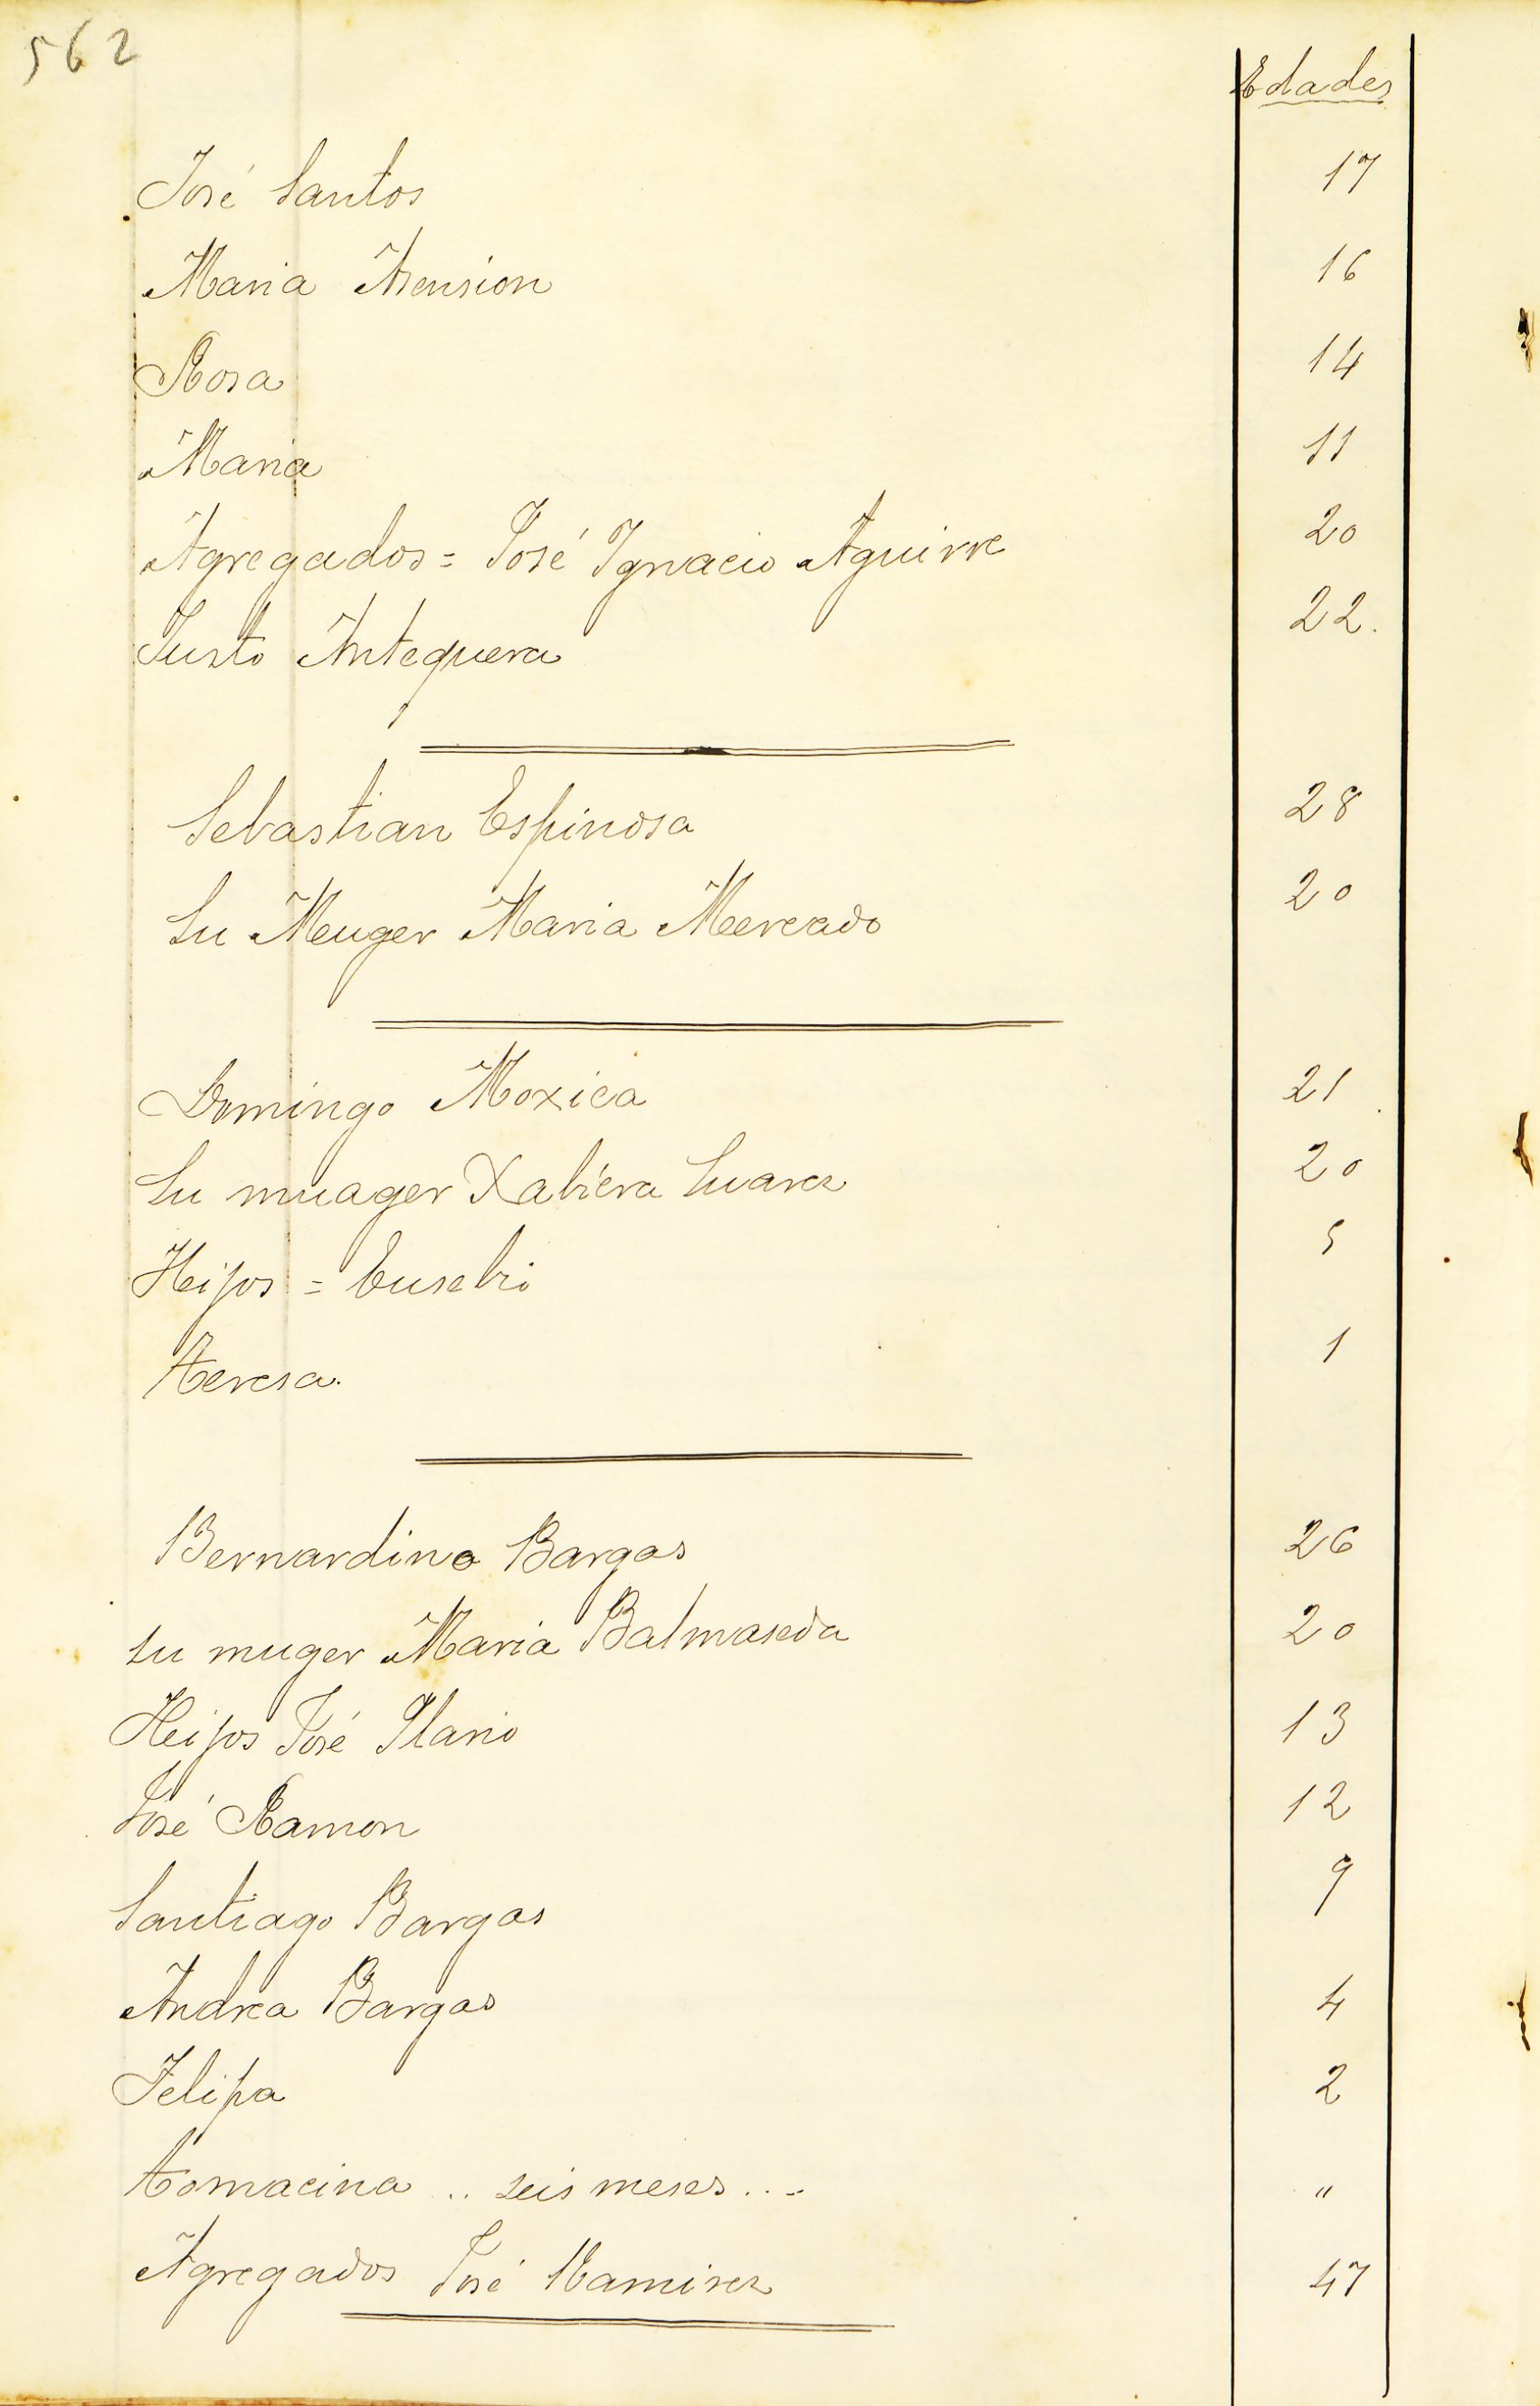 562
Edades
José Santos 17
Maria Asension 16
Rosa 14
Maria 11
Agregados = José Ignacio Aguirre 20
Justo Antequera 22.
Sebastian Espinosa 28
Su Muger Maria Mercado 20
Domingo Moxica 21
Su muager Xabiera Suarez 20
Heijos = Eusebio 5
Teresa. 1
Bernardino Bargas 26
su muger Maria Balmaseda 20
Heijos José Ilario 13
José Ramon 12
Santiago Bargas 9
Andrea Bargas 4
Felipa 2
Tomacina .. seis meses ... "
Agregados José Ramirez 47